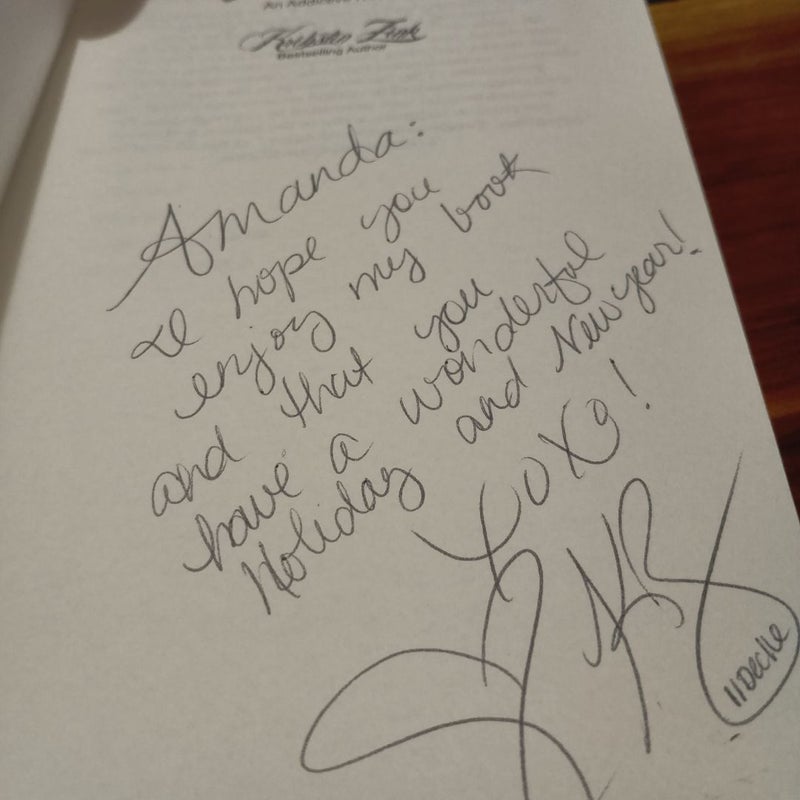 An Addictive
Bestselling Author
Amanda:
I hope you
enjoy my book
and that you
have a wonderful
Holiday and New year!
XOXO!